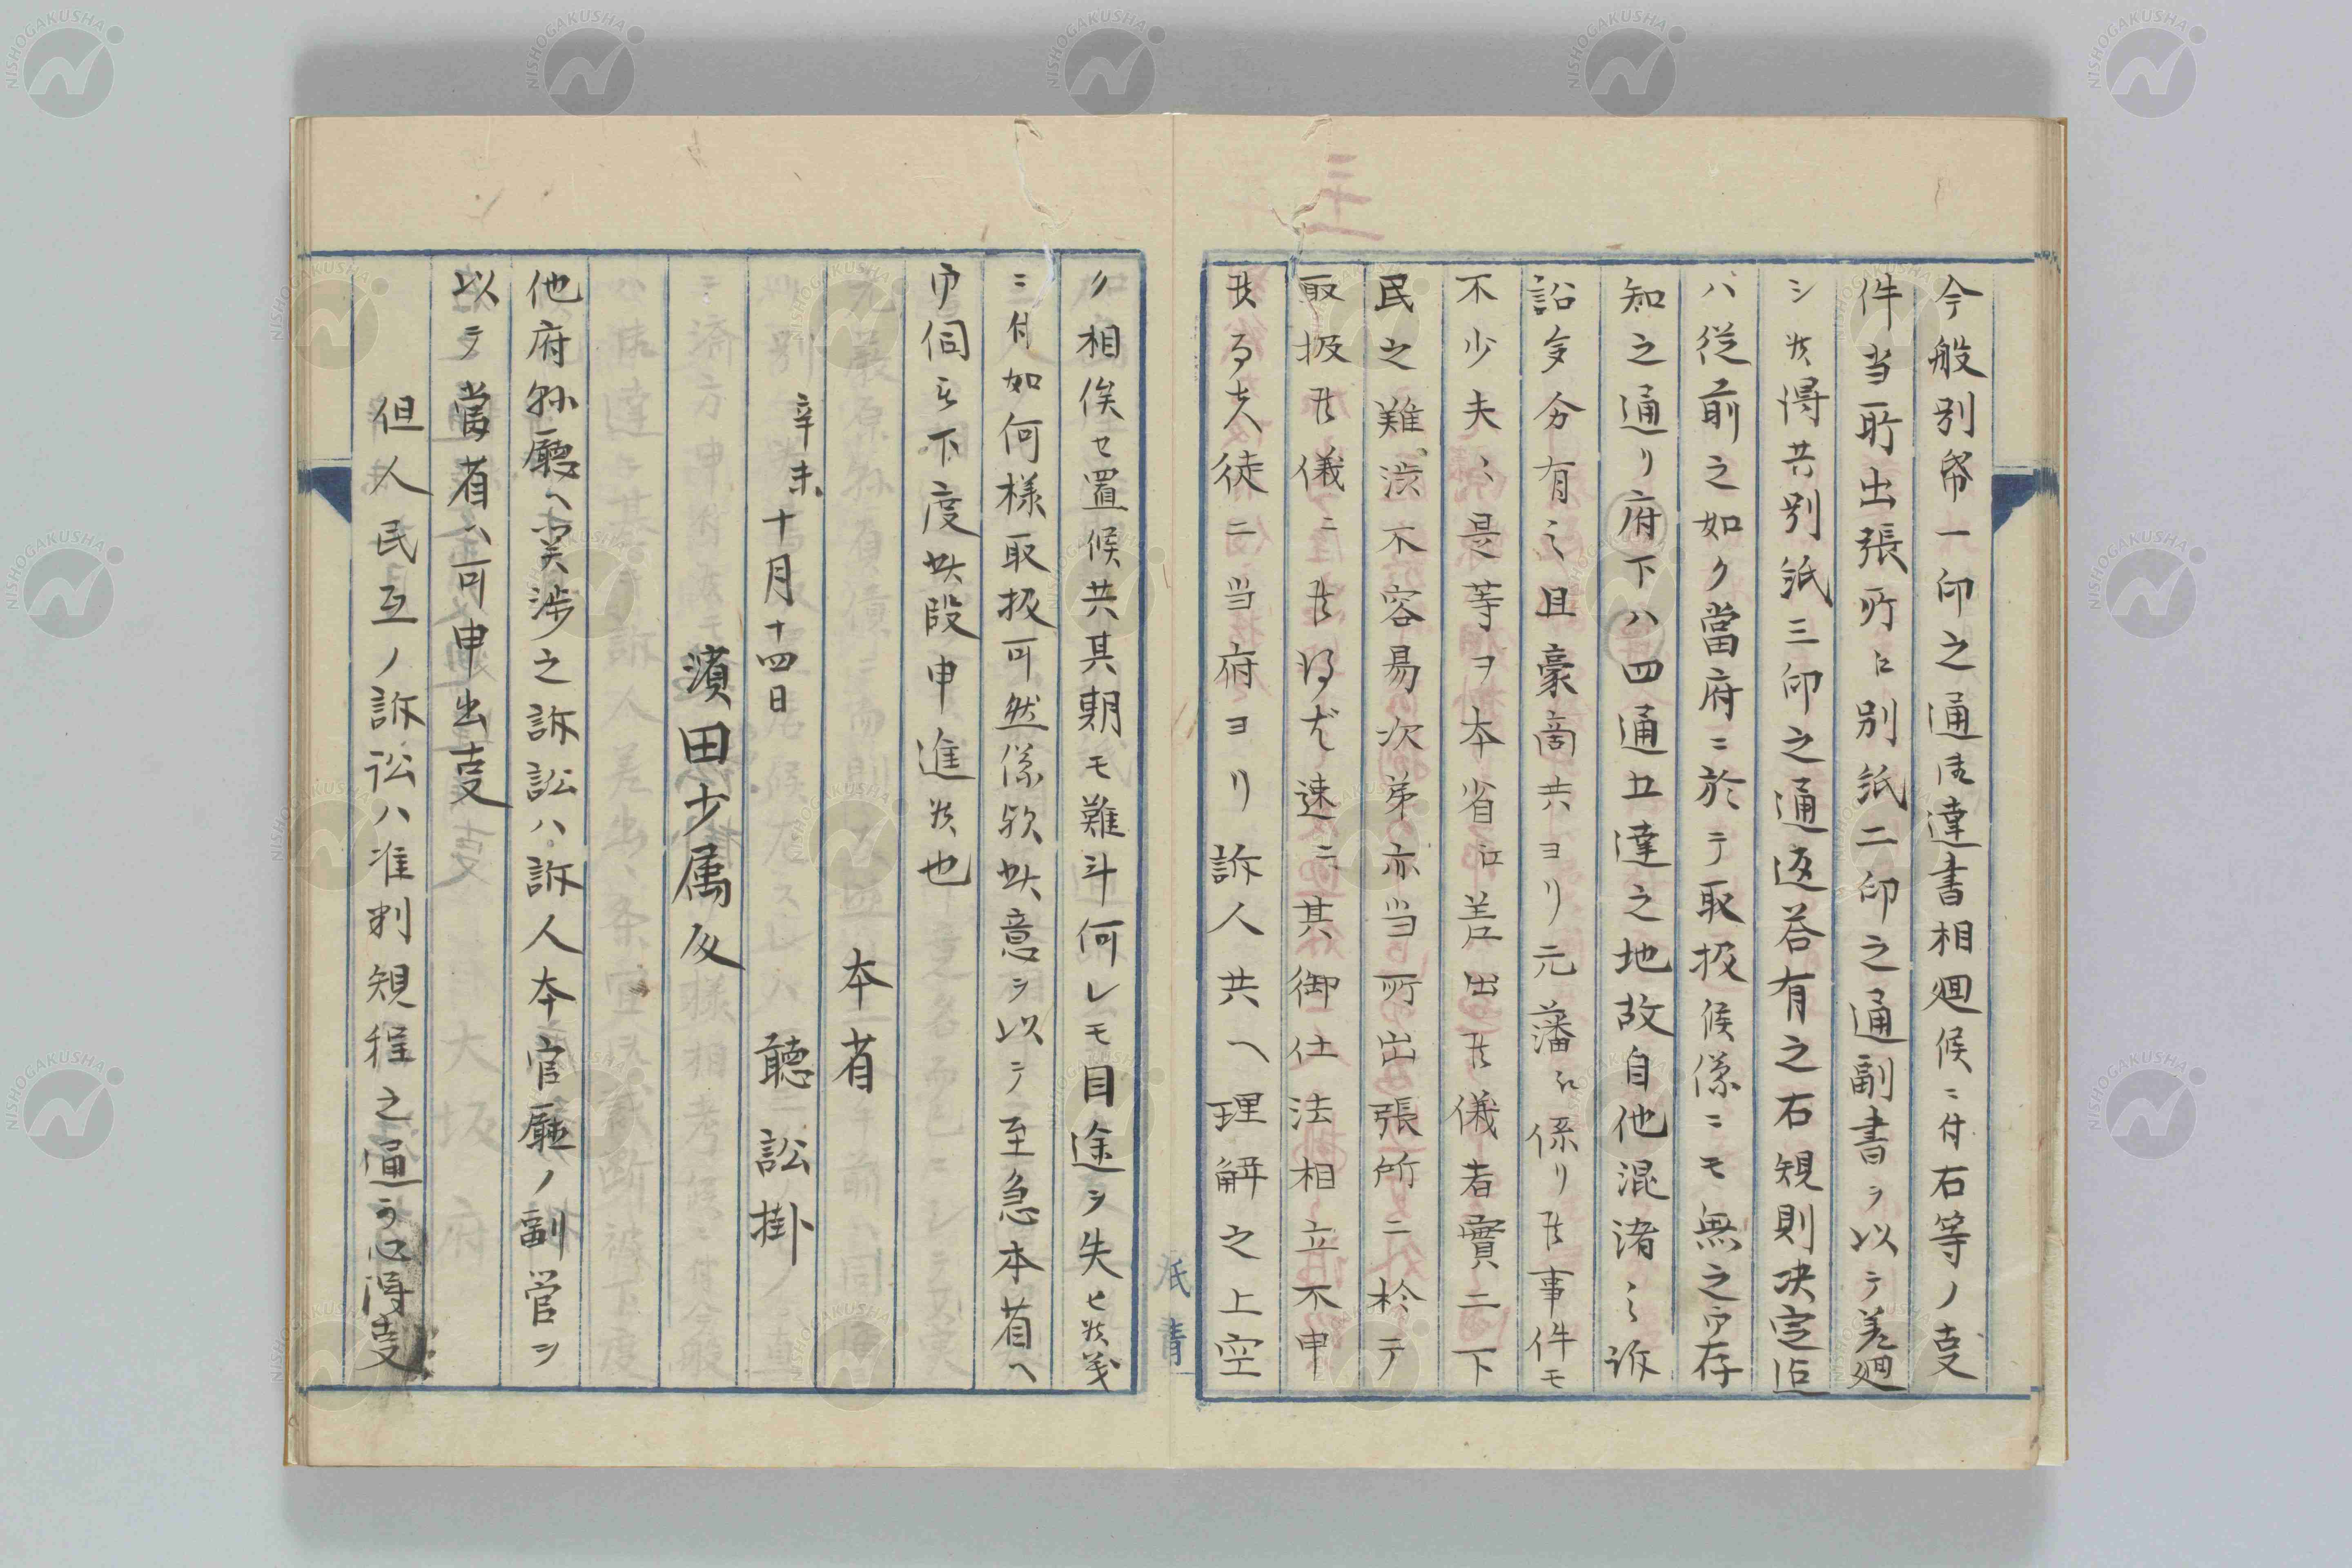 今般別帋一印之通御達書相廻候ニ付右等ノ㕝
件当所出張所江別紙二印之通副書ヲ以テ差廻
シ候得共別紙三印之通返答有之右規則決定迄
ハ従前之如ク當府ニ於テ取扱候儀ニモ無之御存
知之通リ府下ハ四通五達之地故自他混淆之訴
訟多分有之且豪商共ヨリ元藩々江係リ候事件モ
不少夫々是等ヲ本省江差出候儀者實ニ下
民之難渋不容易次第亦当所出張所ニ於テ
取扱候儀ニ候得ハ速ニ其御仕法相立不申
候而者徒ニ当府ヨリ訴人共ヘ理解之上空
ク相俟セ置候共其期モ難斗何レモ目途ヲ失ヒ候義
ニ付如何様取扱可然儀欤此意ヲ以テ至急本省ヘ
御伺被下度此段申進候也
本省
辛未十月十四日 聴訟掛
濱田少属殿
他府縣廳ヘ関渉之訴訟ハ訴人本官廳ノ副管ヲ
以テ當省ヘ可申出㕝
但人民互ノ訴訟ハ准判規程之通可心得㕝